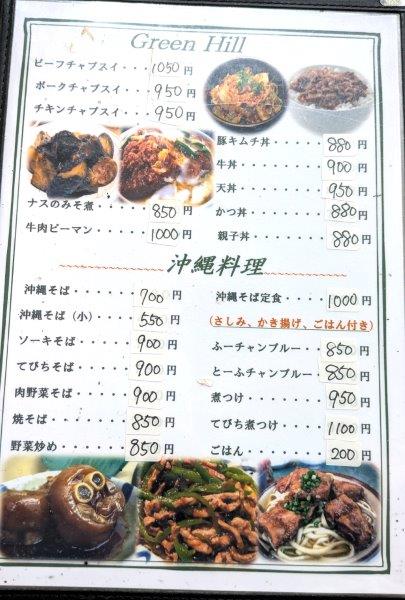 Green Hill
ビーフチャプスイ・・・1050円
ポークチャプスイ・・・950円
チキンチャプスイ・・・950円
ナスのみそ煮・・・・・850円
牛肉ピーマン・・・・・1000円
豚キムチ丼・・・・・・880円
牛丼・・・・・・・・・900円
天丼・・・・・・・・・950円
かつ丼・・・・・・・・880円
親子丼・・・・・・・・880円
沖縄料理
沖縄そば・・・・・・700円
沖縄そば（小）・・・・550円
ソーキそば・・・・・900円
てびちそば・・・・・900円
肉野菜そば・・・・・900円
焼そば・・・・・・・850円
野菜炒め・・・・・・850円
沖縄そば定食・・・・1000円
（さしみ、かき揚げ、ごはん付き）
ふーチャンプルー・・・850円
とーふチャンプルー・・850円
煮つけ・・・・・・・950円
てびち煮つけ・・・・1100円
ごはん・・・・・・・200円